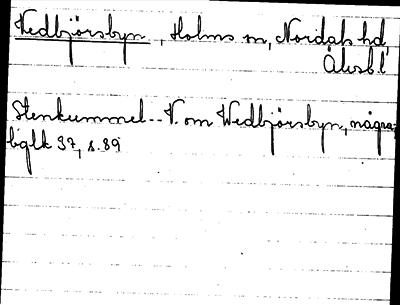 Vedbjörsbyn, Holms sn, Nordals hd,
Älvsb l
Stenkummel -- V. om Wedbjörsbyn, några
bglk 37, s. 89